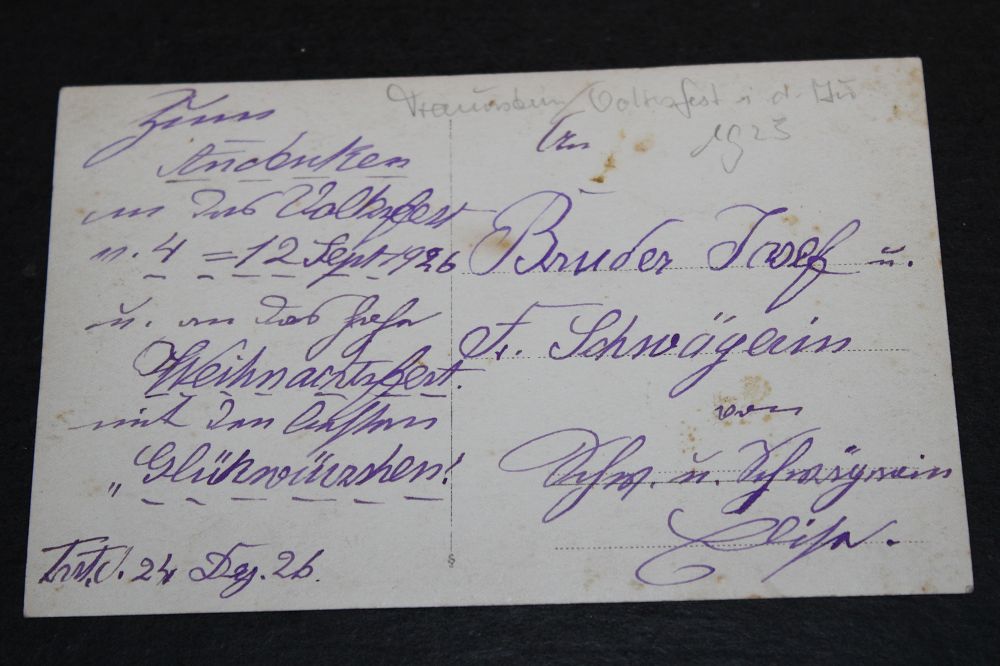 Zum
Andenken
an das Volksfest
v. 4 = 12 Sept. 1926
u. an das hohe
Weihnachtsfest.
mit den besten
„Glükwünschen!
Trst. d. 24 Dez. 26.
Traunstein Volksfest i. d. Au
1923
An
Bruder Josef u.
Fr. Schwägerin
von
Schw. u. Schwägerin
Elisa.